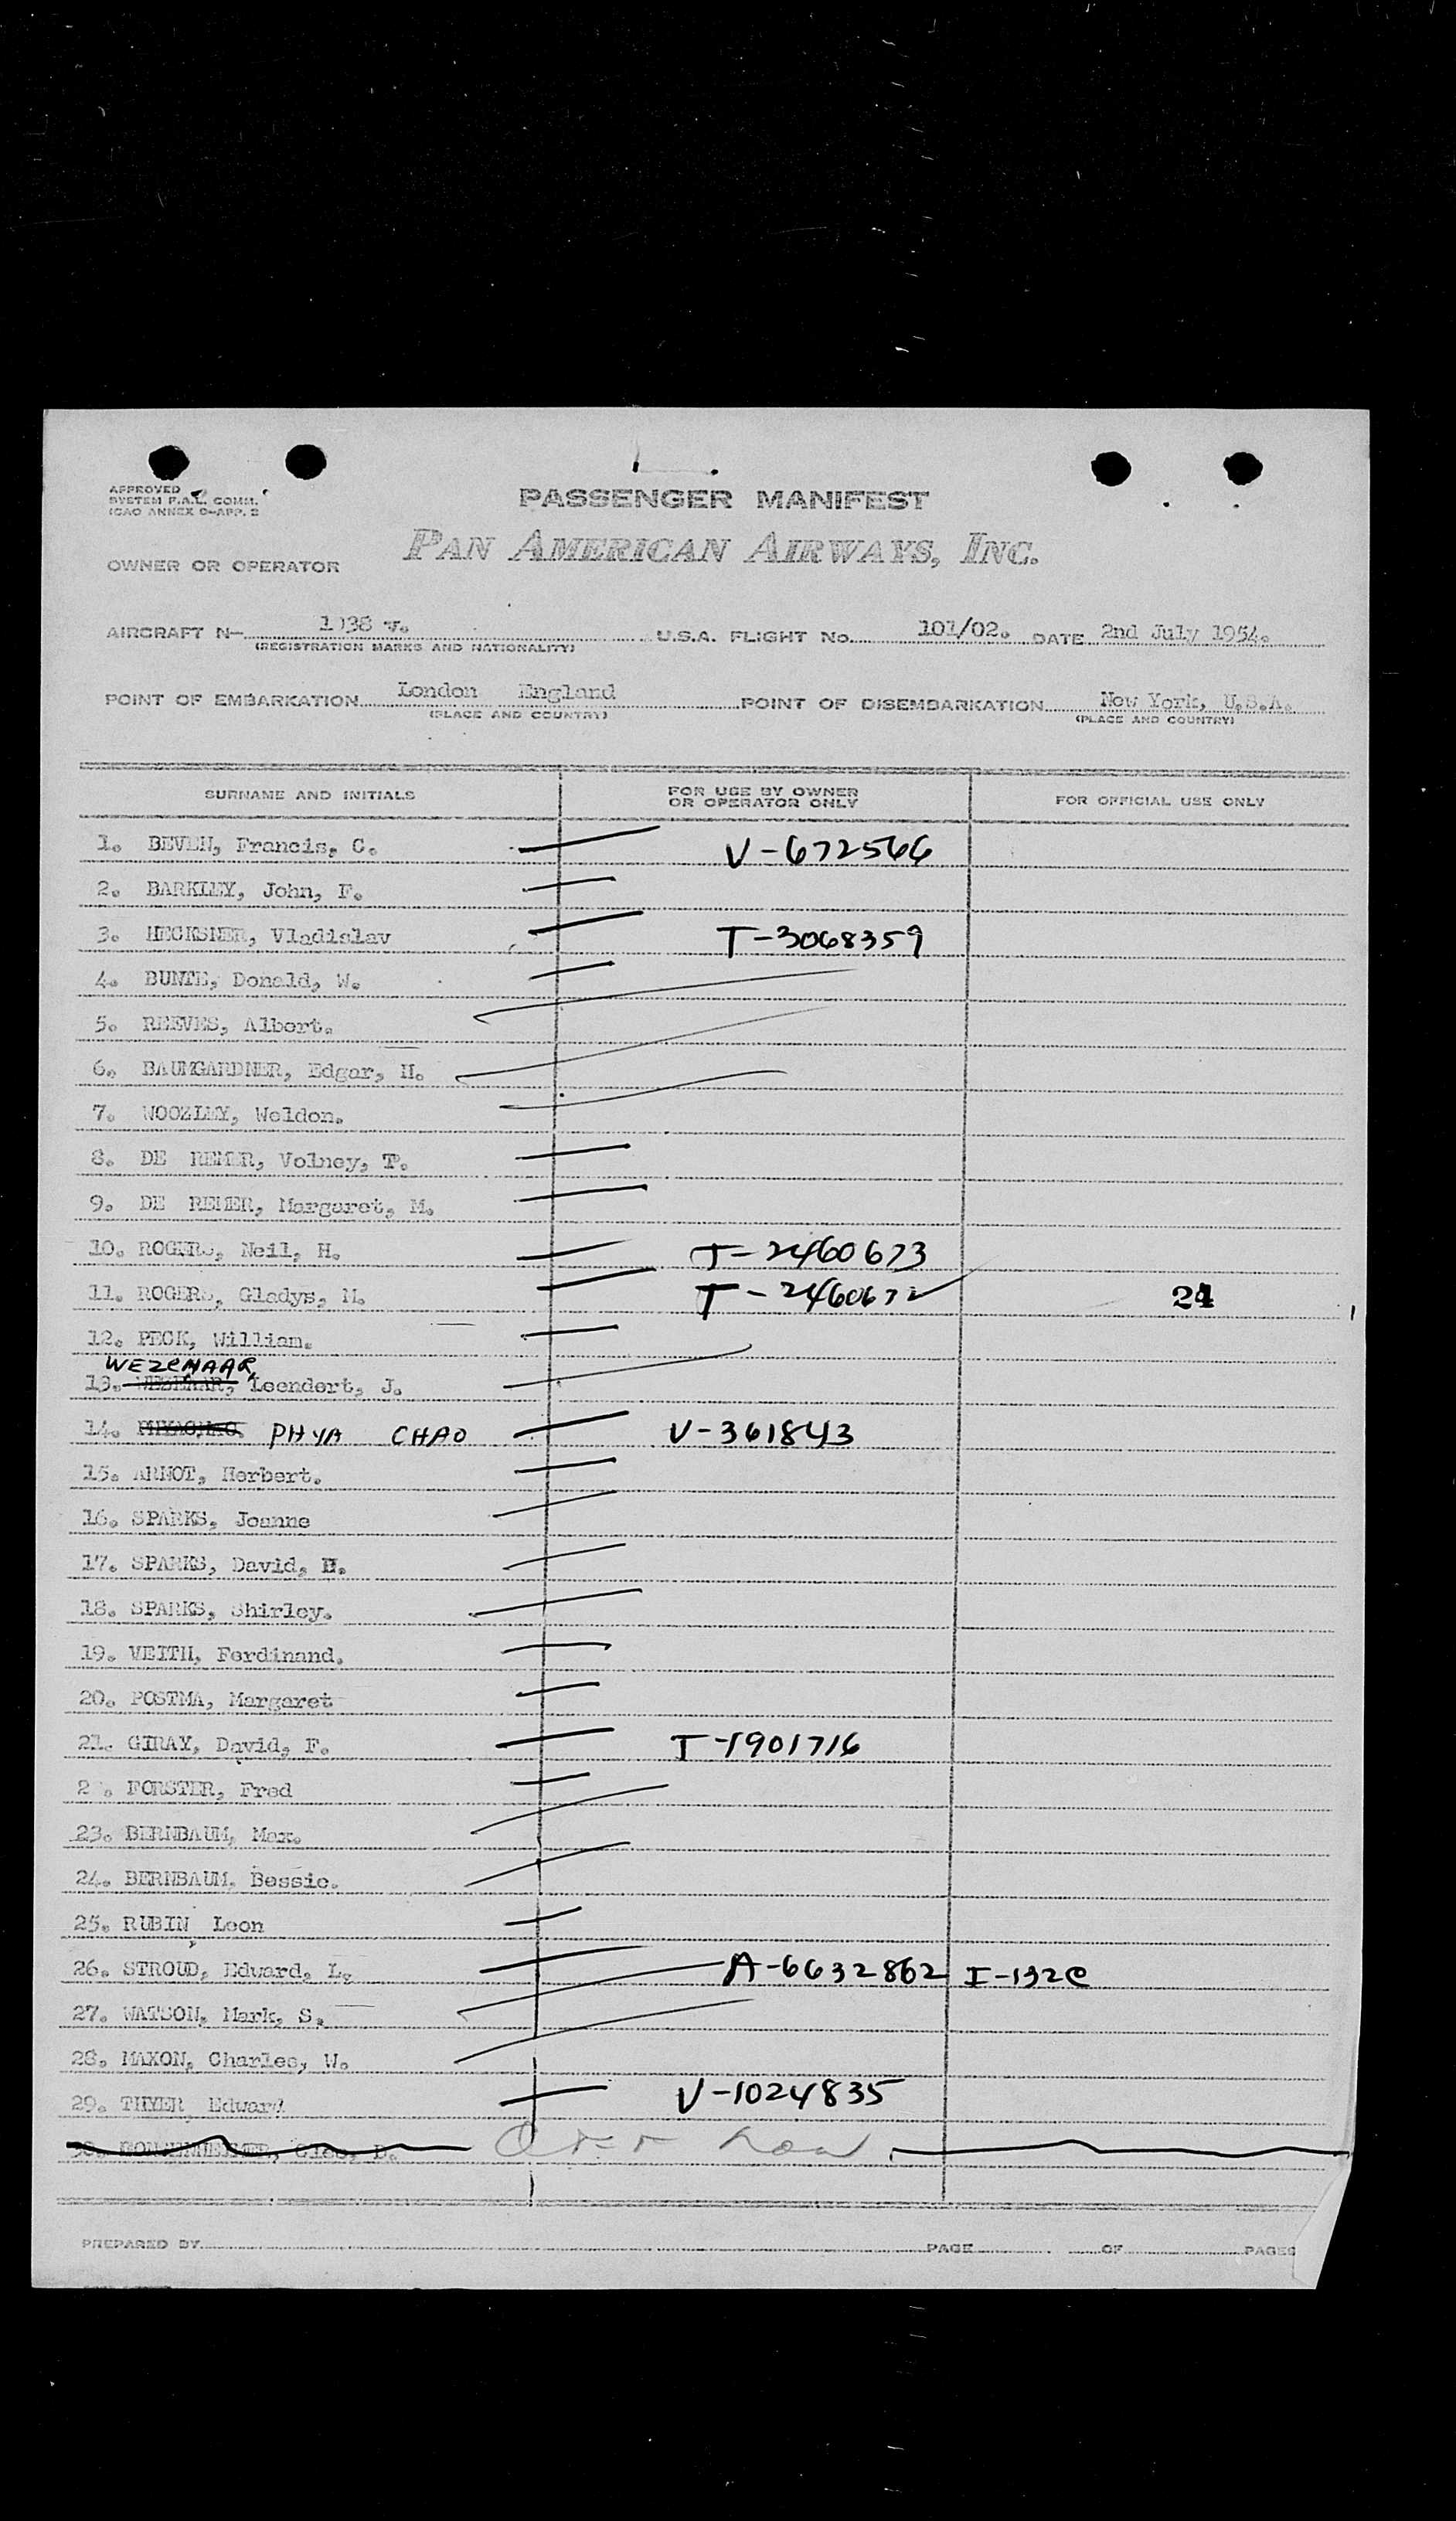 APPROVED
SYSTEM F.A.L. COMM.
ICAO ANNEX 9-APP. 2
PASSENGER MANIFEST
OWNER OR OPERATOR PAN AMERICAN AIRWAYS, INC.
AIRCRAFT N- U.S.A. FLIGHT No. 101/02. DATE 2nd July 1954.
(REGISTRATION MARKS AND NATIONALITY)
POINT OF EMBARKATION London England POINT OF DISEMBARKATION New York, U.S.A.
(PLACE AND COUNTRY) (PLACE AND COUNTRY)
SURNAME AND INITIALS FOR USE BY OWNER OR OPERATOR ONLY FOR OFFICIAL USE ONLY
1. BEVEN, Francis, C. V-672566
2. BARKLEY, John, F.
3. HECKSNER, Vladislav T-3068359
4. BUNTE, Donald, W.
5. REEVES, Albert.
6. BAUMGARDNER, Edgar, H.
7. WOOZLEY, Weldon.
8. DE REMER, Volney, T.
9. DE REMER, Margaret, M.
10. ROGERS, Neil, H. T-2460673
11. ROGERS, Gladys, M. T-2460672 24
12. PECK, William.
WEZEMAAR,
13. Leendert, J.
14. PHYA CHAO V-361843
15. ARNOT, Herbert.
16. SPARKS, Joanne
17. SPARKS, David, H.
18. SPARKS, Shirley.
19. VEITH, Ferdinand.
20. POSTMA, Margaret
21. GIRAY, David, F. T-1901716
2 . FORSTER, Fred
23. BERNBAUM, Max.
24. BERNBAUM, Bessie.
25. RUBIN, Leon
26. STROUD, Edward, L. A-6632862 I-132C
27. WATSON, Mark, S.
28. MAXON, Charles, W.
29. THYER, Edward V-1024835
30. Cleo, D.
PREPARED BY PAGE OF PAGES